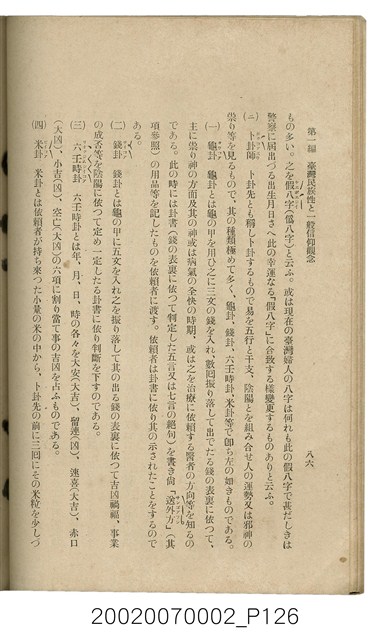 第一編 臺灣民族性と一般信仰觀念
八六
もの多い。之を假八字(僞八字)と云ふ。或は現在の臺灣婦人の八字は何れも此の假八字で甚だしきは
警察に屆出づる出生月日さへ此の幸運なる「假八字」に合致する樣變更するものありと云ふ。
(ニ) 卜卦師 卜卦先とも稱し卜卦するもので易を五行と干支、陰陽とを組み合せ人の運勢又は邪神の
祟り等を見るもので、其の種類極めて多く、龜卦、錢卦、六壬時卦、米卦等で卽ち左の如きものである。
(一) 龜卦 龜卦とは龜の甲を用ひ之に三文の錢を入れ、數囘振り落して出でたる錢の表裏に依つて、
主に祟り神の方面及其の神或は病氣の全快の時期、或は之を治療に依賴する醫者の方向等を知るの
である。此の時には卦書(錢の表裏に依つて判定した五言又は七言の絕句)を書き尙「送外方」(其
項參照)の用品等を記したものを依賴者に渡す。依賴者は卦書に依り其の示されたことをするので
ある。
(二) 錢卦 錢卦とは龜の甲に五文を入れ之を振り落して其の出る錢の表裏に依つて吉凶禍福、事業
の成否等を陰陽に依つて定め一定したる卦書に依り判斷を下すのである。
(三) 六壬時卦 六壬時卦とは年、月、日、時の各々を大安(大吉)、留連(凶)、速喜(大吉)、赤口
(大凶)、小吉(凶)、空亡(大凶)の六項に割り當て事の吉凶を占ふものである。
(四) 米卦 米卦とは依賴者が持ち來つた小量の米の中から、卜卦先の前に三囘に其の米粒を少しづ
20020070002_P126